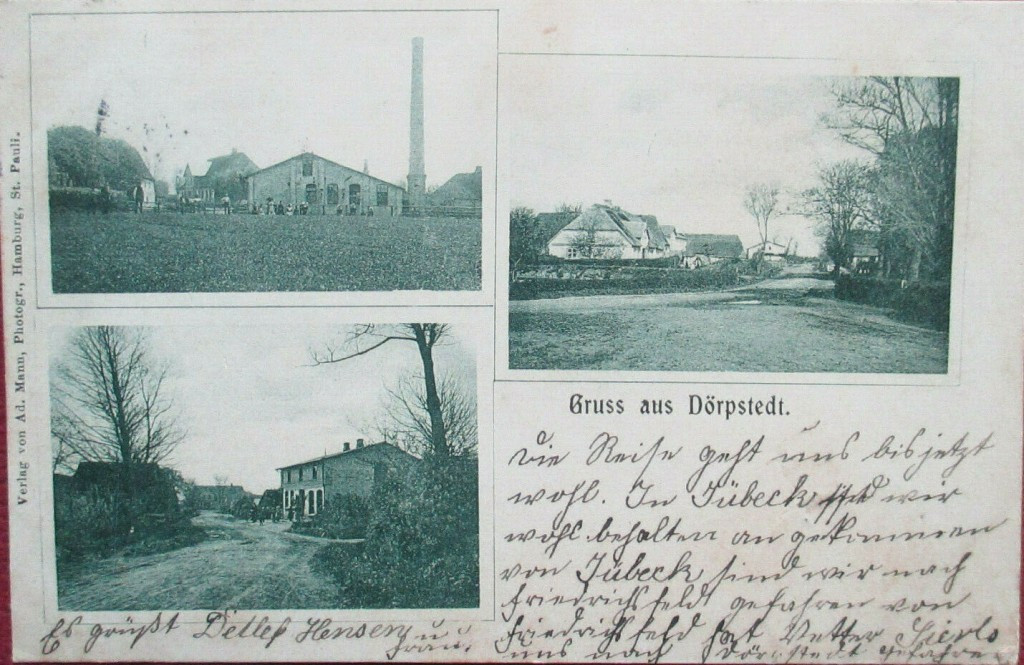 Verlag von Ad. Mann, Photogr., Hamburg, St. Pauli.
Gruss aus Dörpstedt.
Die Reise geht uns bis jetzt
wohl. In Jübeck sind wir
wohl behalten an gekommen
von Jübeck sind wir nach
Friedrichsfeldt gefahren von
Friedrichsfeld hat Vetter Sierls
uns nach Dörpstedt gefahren.
Es grüßt Detlef Hensen u.
Frau.